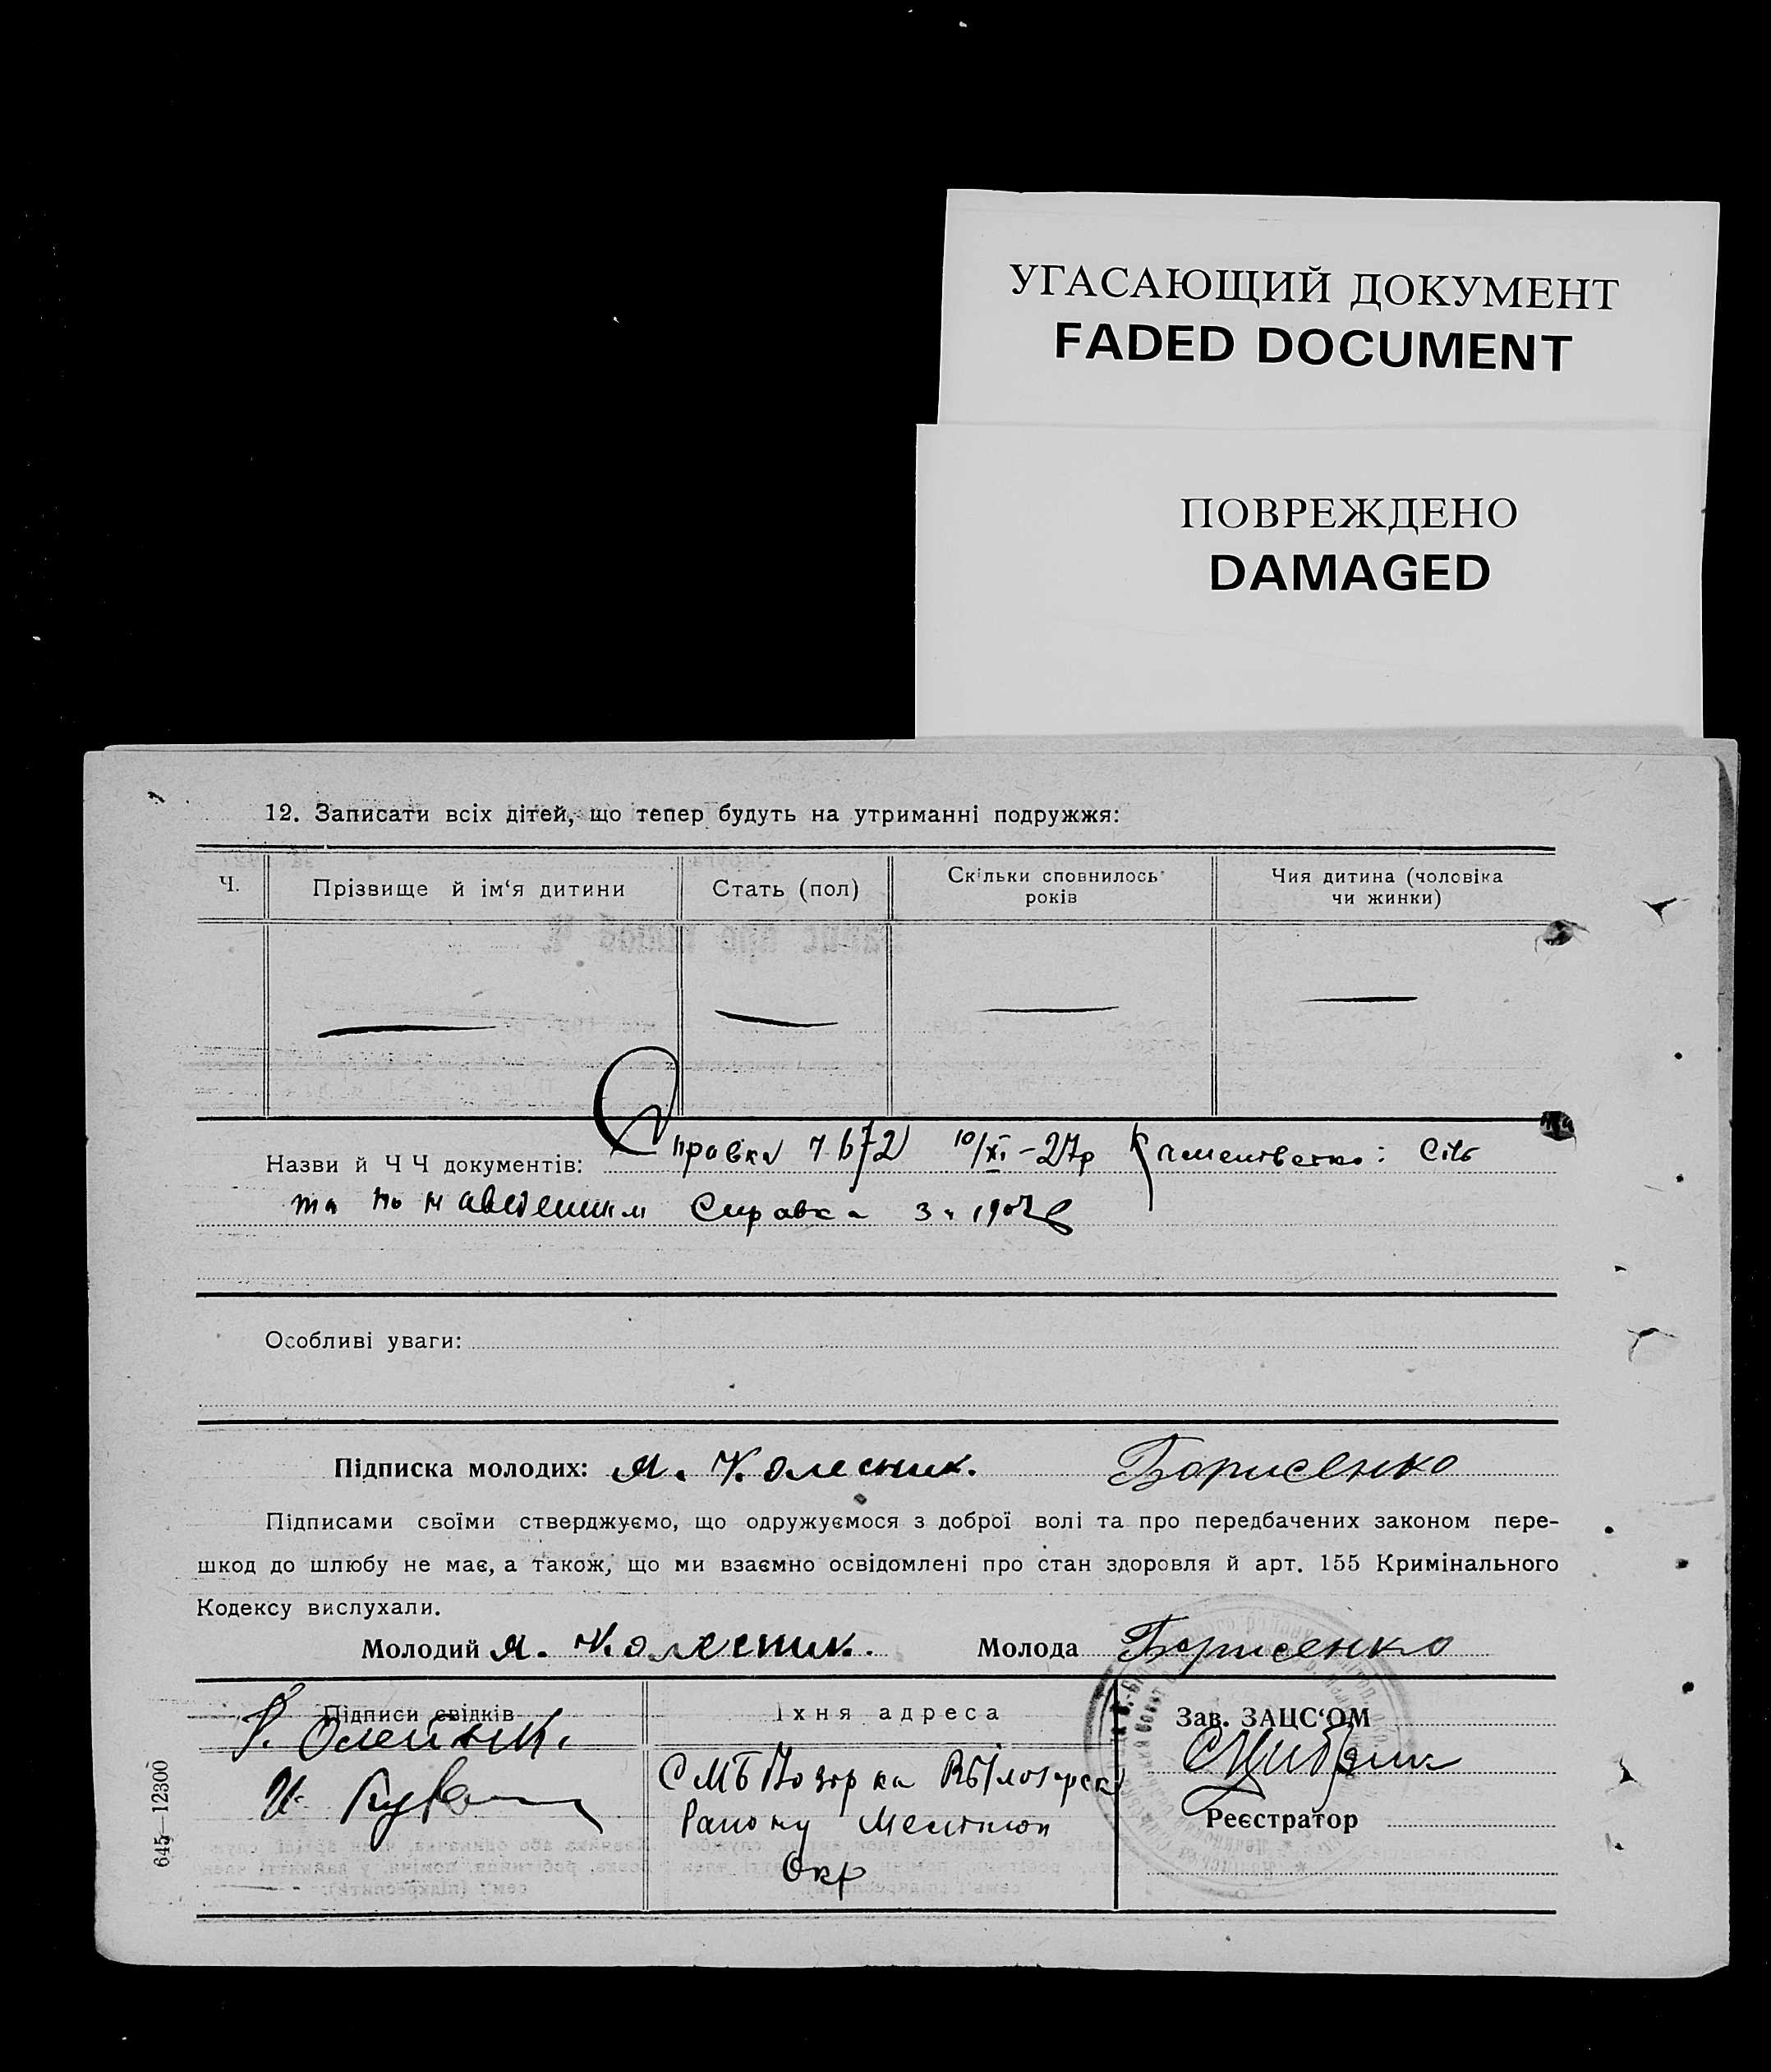 УГАСАЮЩИЙ ДОКУМЕНТ
FADED DOCUMENT
ПОВРЕЖДЕНО
DAMAGED
12. Записати всіх дітей, що тепер будуть на утриманні подружжя:
Ч.
Прізвище й ім'я дитини
Стать (пол)
Скільки сповнилось
років
Чия дитина (чоловіка
чи жинки)
Назви й Ч Ч документів: Справка 10/XI - 27р
та Справка
Особливі уваги:
Підписка молодих: Я. Колесник. Борисенко
Підписами своїми стверджуємо, що одружуємося з доброї волі та про передбачених законом пере-
шкод до шлюбу не має, а також, що ми взаємно освідомлені про стан здоровля й арт. 155 Кримінального
Кодексу вислухали.
Молодий Я. Колесник. Молода Борисенко
Підписи свідків
Олейник.
И.
Їхня адреса
Району Мелитоп
Окр
Зав. ЗАЦС'ОМ
Реєстратор
645—12300